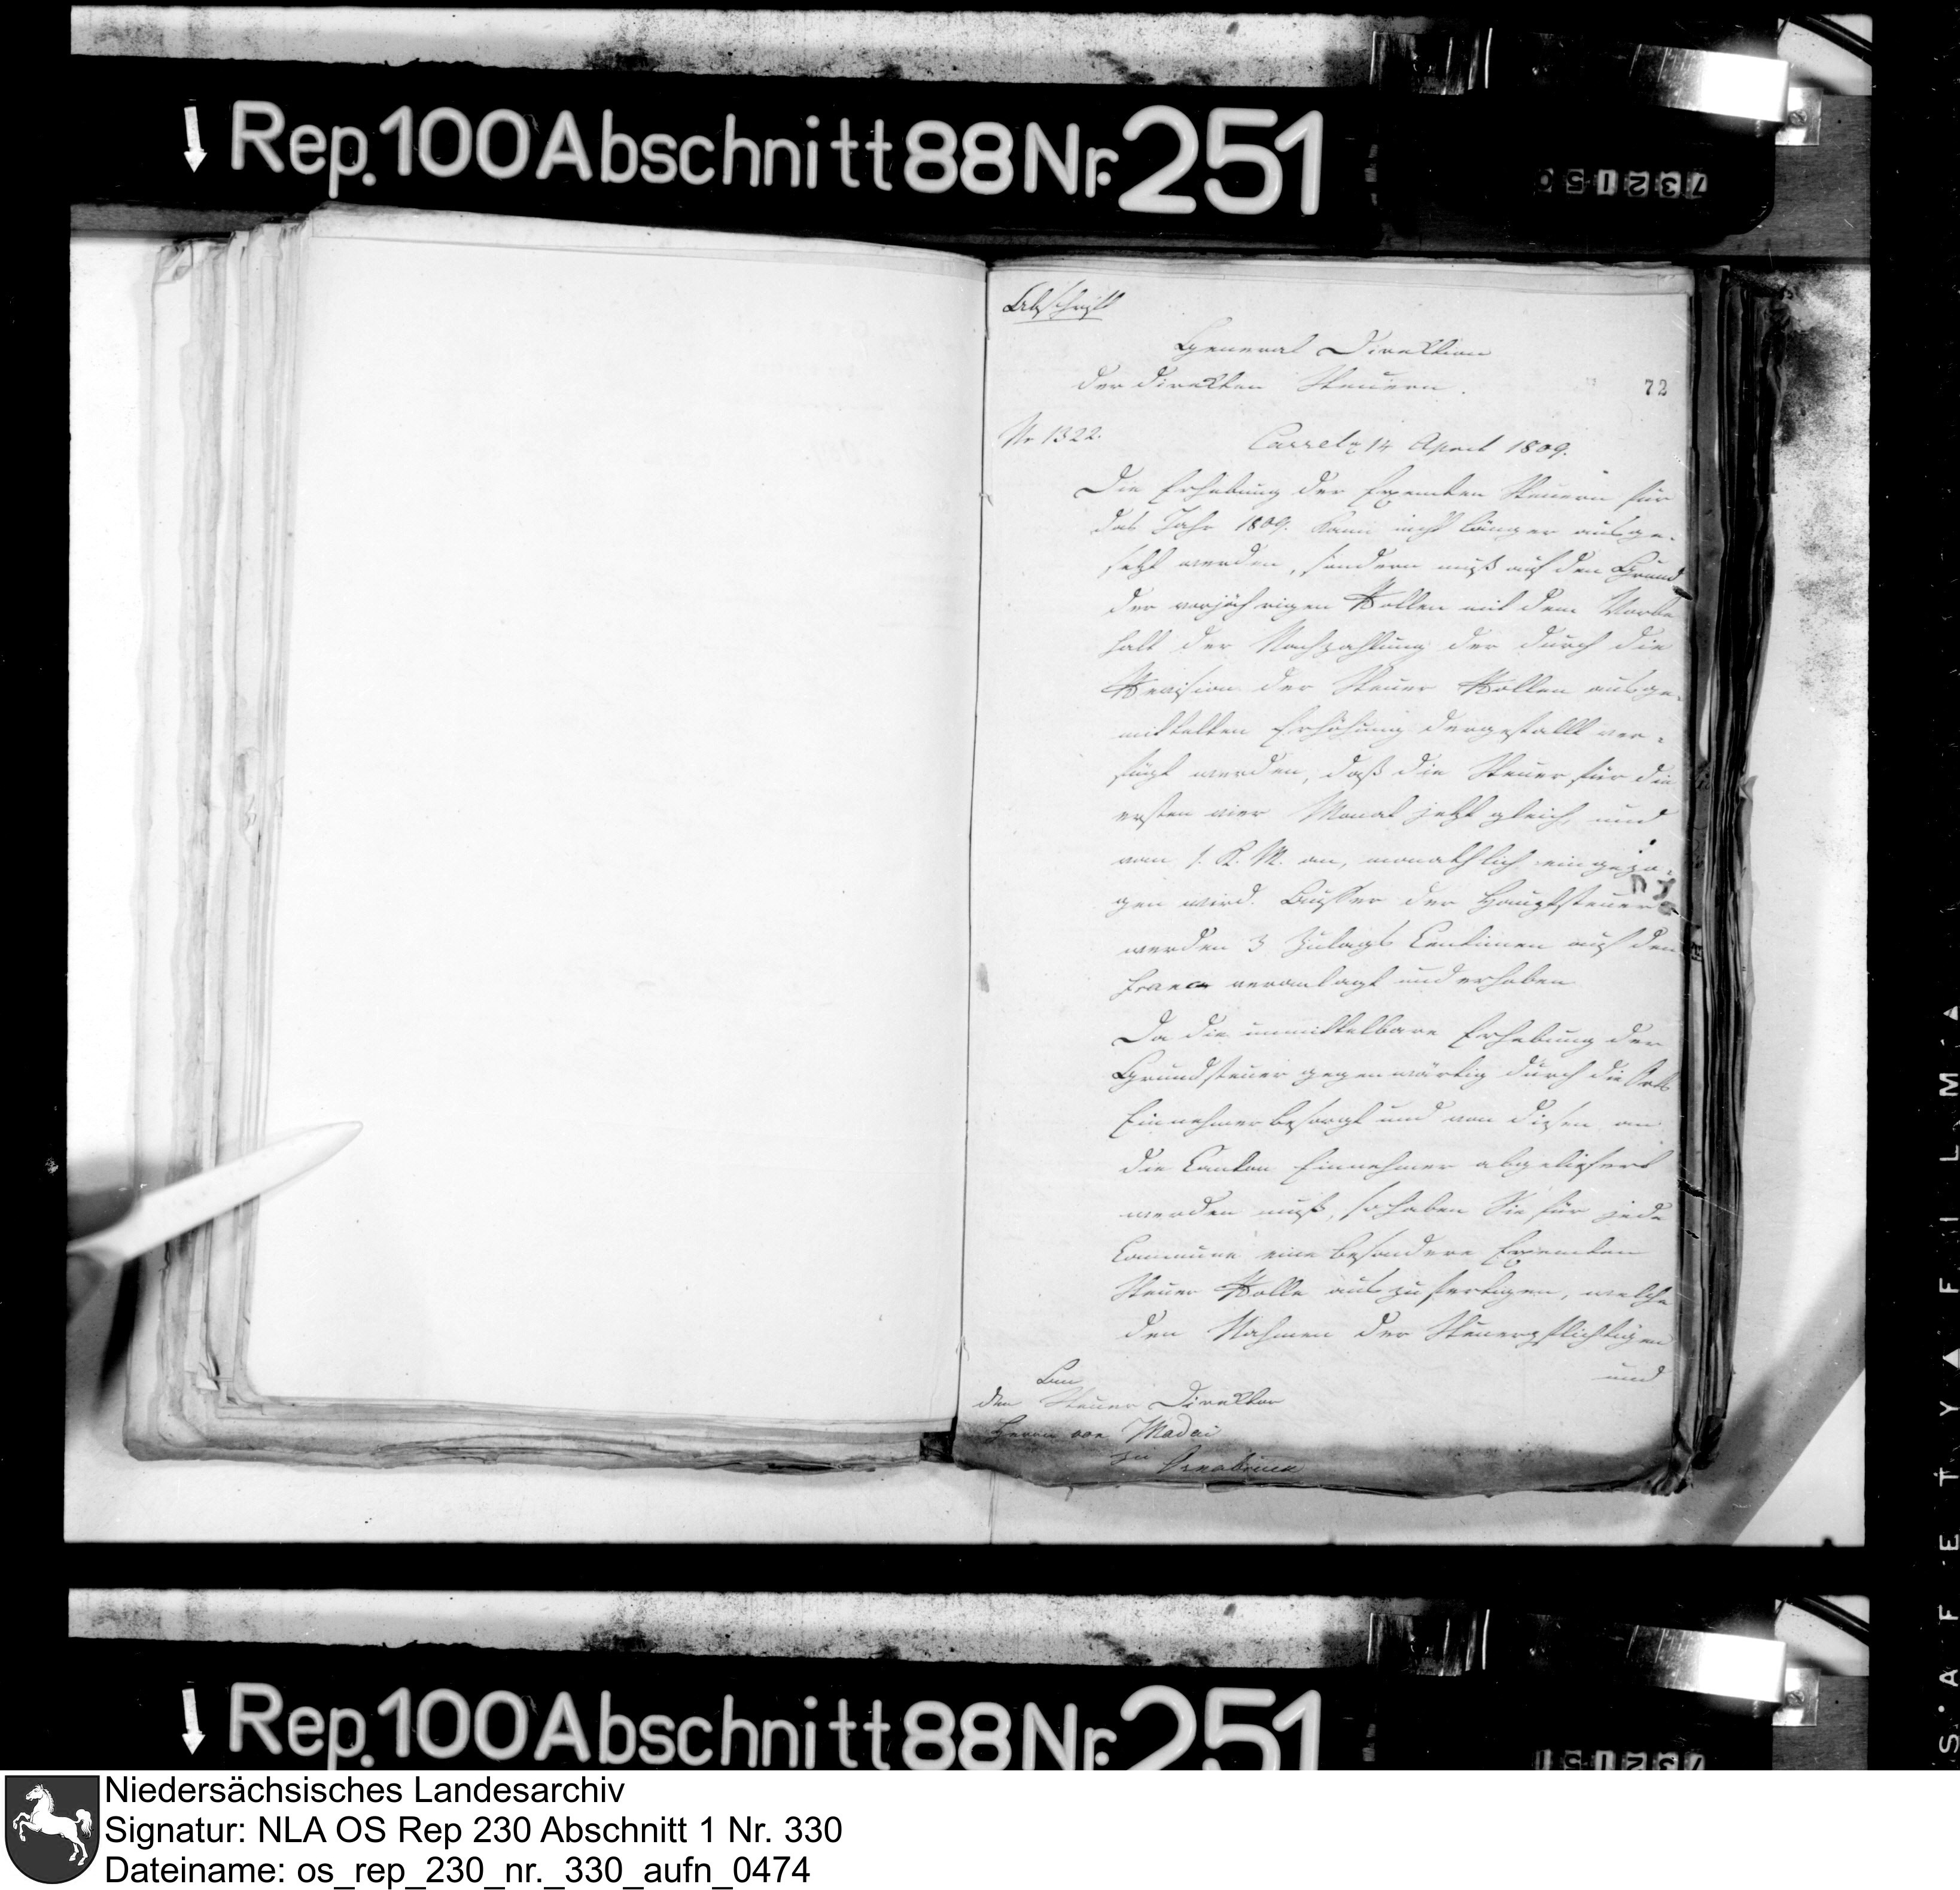 Rep. 100 Abschnitt 88 Nr. 251
Abschrift
General Direktion
der direkten Steuern.
72
Nr 1322.
Cassel 14 April 1809.
Die Erhebung der Exemten Steuern für
das Jahr 1809. kann nicht länger ausge-
setzt werden, sondern muß auf den Grund
der vorjährigen Rollen mit dem Vorbe
halt der Nachzahlung der durch die
Revision der Steuer Rollen ausge-
mittelten Erhöhung dergestallt ver-
fügt werden, daß die Steuer für die
ersten vier Monat jetzt gleich, und
vom 1. k. M. an, monathlich eingezo-
gen wird. Ausser der Hauptsteuer
werden 3 Zulags Centimen auf den
Franc veranlagt und erhoben
Da die unmittelbare Erhebung der
Grundsteuer gegenwärtig durch die Orts
Einnehmer besorgt und von diesen an
die Canton Einnehmer abgeliefert
werden muß, so haben Sie für jede
Commune eine besondere Exemten
Steuer Rolle auszufertigen, welche
den Nahmen der Steuerpflichtigen
und
An
den Steuer Direktor
Herrn von Madai
zu Osnabrück
Rep. 100 Abschnitt 88 Nr. 251
Niedersächsisches Landesarchiv
Signatur: NLA OS Rep 230 Abschnitt 1 Nr. 330
Dateiname: os_rep_230_nr._330_aufn_0474
SAFETY FILM